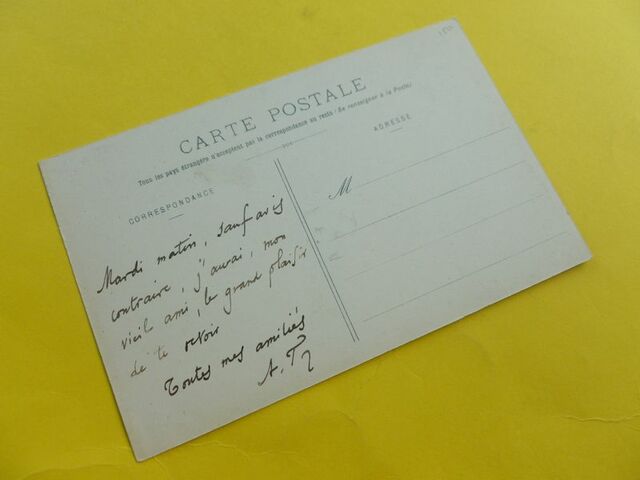 CARTE POSTALE
Tous les pays étrangers n'acceptent pas la correspondance au recto (Se renseigner à la Poste)
CORRESPONDANCE
ADRESSE
M
Mardi matin, sauf avis
contraire, j'aurai, mon
vieil ami, le grand plaisir
de te revoir
Toutes mes amitiés